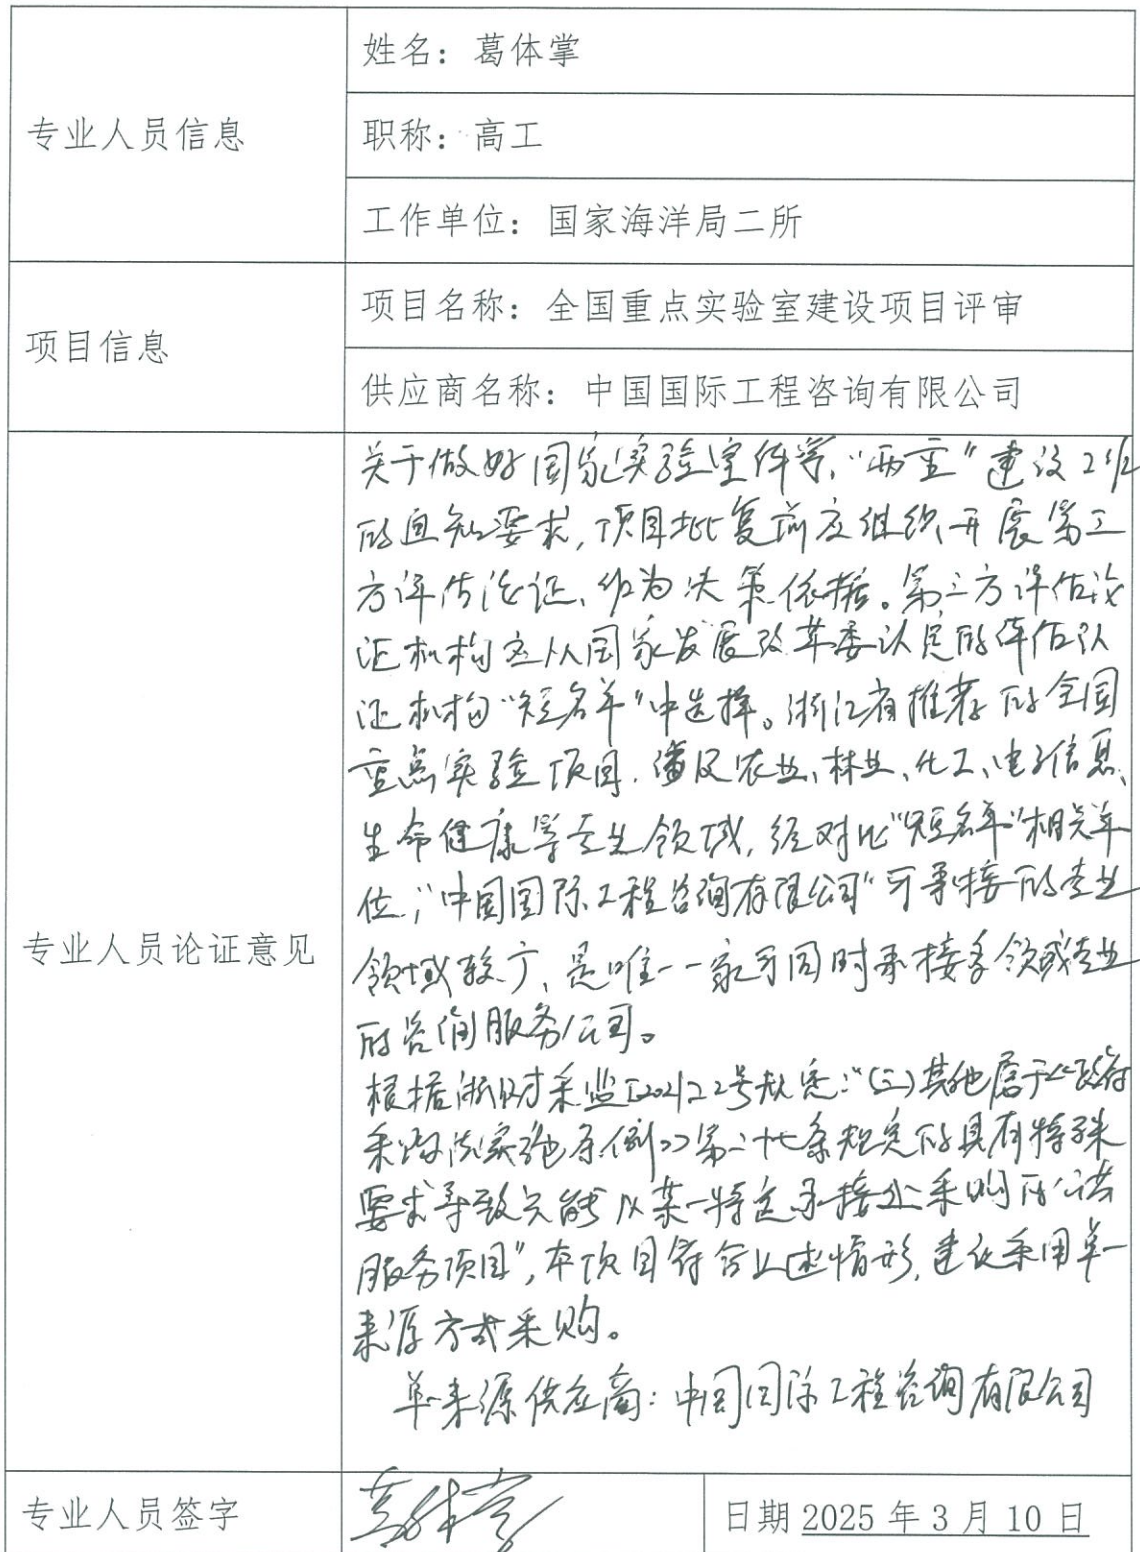 姓名：葛体掌
专业人员信息
职称：高工
工作单位：国家海洋局二所
项目信息
项目名称：全国重点实验室建设项目评审
供应商名称：中国国际工程咨询有限公司
专业人员论证意见
关于做好国家实验室体系“两重”建设工作
的通知要求，项目批复前应组织开展第三
方评估论证，作为决策依据。第三方评估论
证机构应从国家发展改革委认定的评估认
证机构“短名单”中选择。浙江省推荐的全国
重点实验项目，涉及农业、林业、化工、电子信息、
生命健康等专业领域，经对比“短名单”相关单
位，“中国国际工程咨询有限公司”可承接的专业
领域较广，是唯一一家可同时承接多领域专业
的咨询服务公司。
根据浙财采监[2021]22号规定：“(三)其他属于《政府
采购法实施条例》第二十七条规定的具有特殊
要求导致只能从某一特定承接处采购的公共
服务项目”，本项目符合上述情形，建议采用单一
来源方式采购。
单一来源供应商：中国国际工程咨询有限公司
专业人员签字
葛体掌
日期 2025 年 3 月 10 日